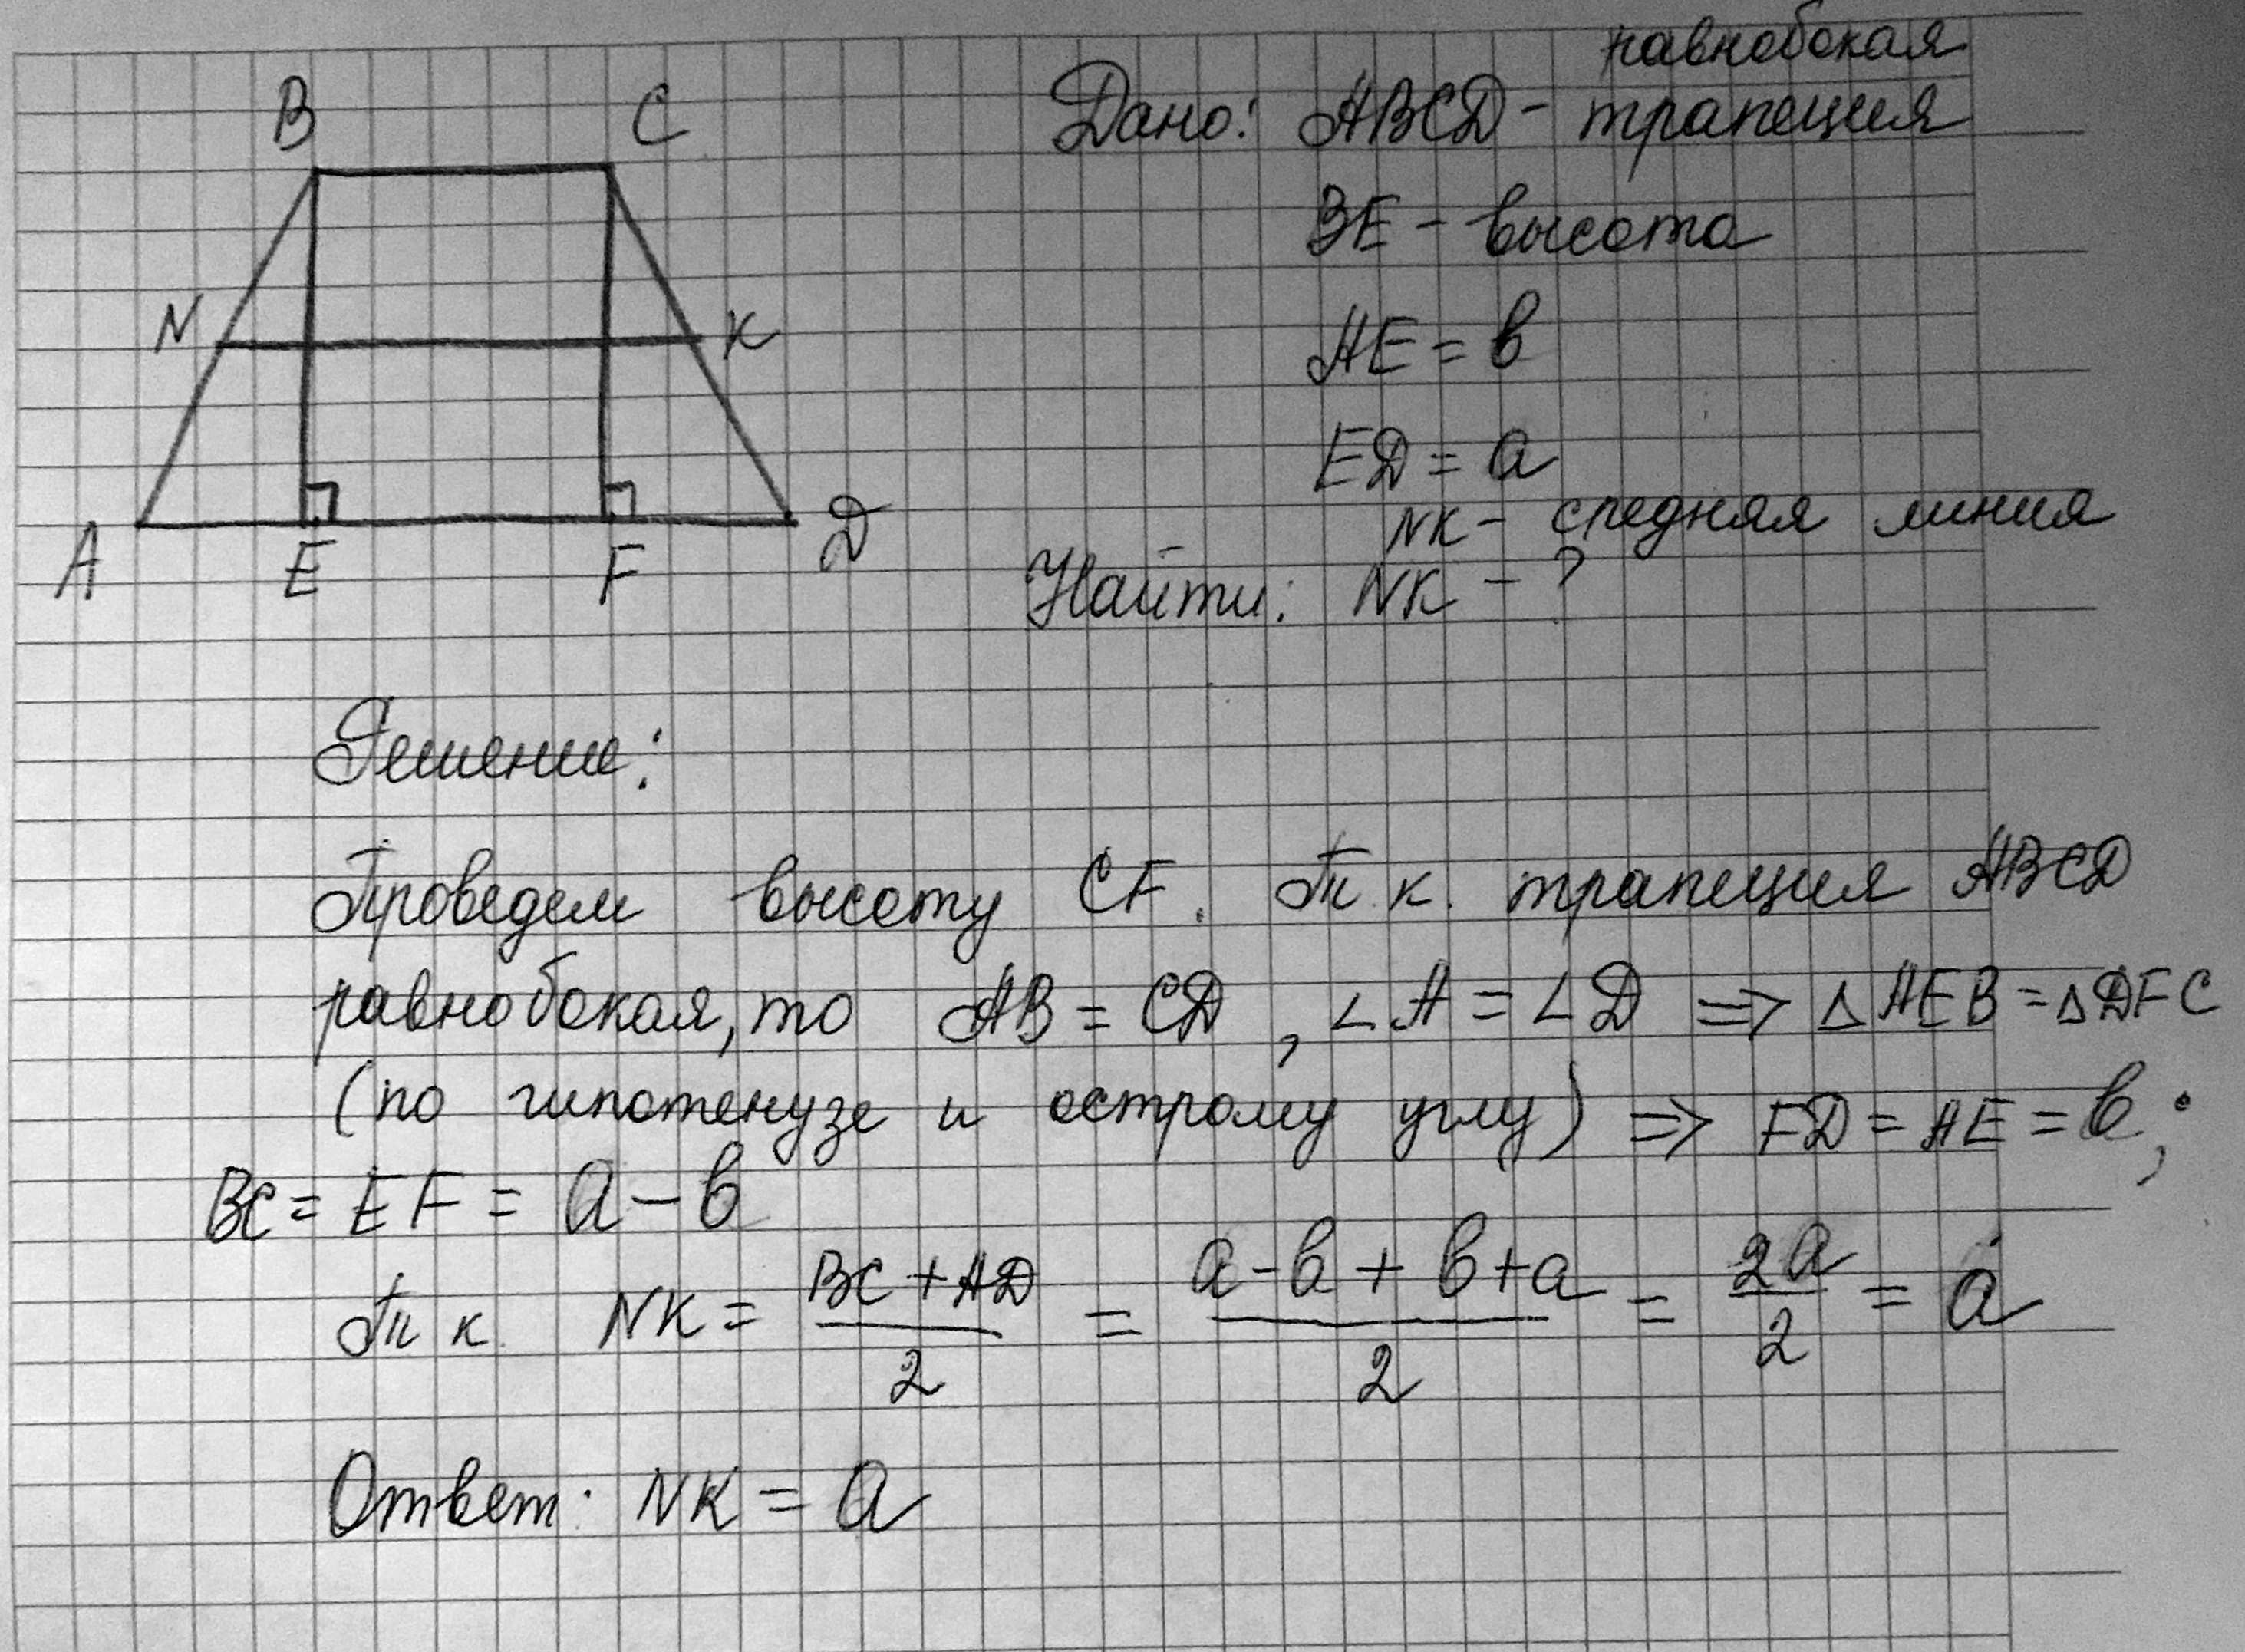 B C
N K
A E F D
Дано: ABCD - равнобокая трапеция
BE - высота
AE = b
ED = a
NK - средняя линия
Найти: NK - ?
Решение:
Проведем высоту CF. Т.к. трапеция ABCD
равнобокая, то AB = CD, ∠A = ∠D => △AEB = △DFC
(по гипотенузе и острому углу) => FD = AE = b;
BC = EF = a - b
Т.к. NK = (BC + AD)/2 = (a - b + b + a)/2 = 2a/2 = a
Ответ: NK = a